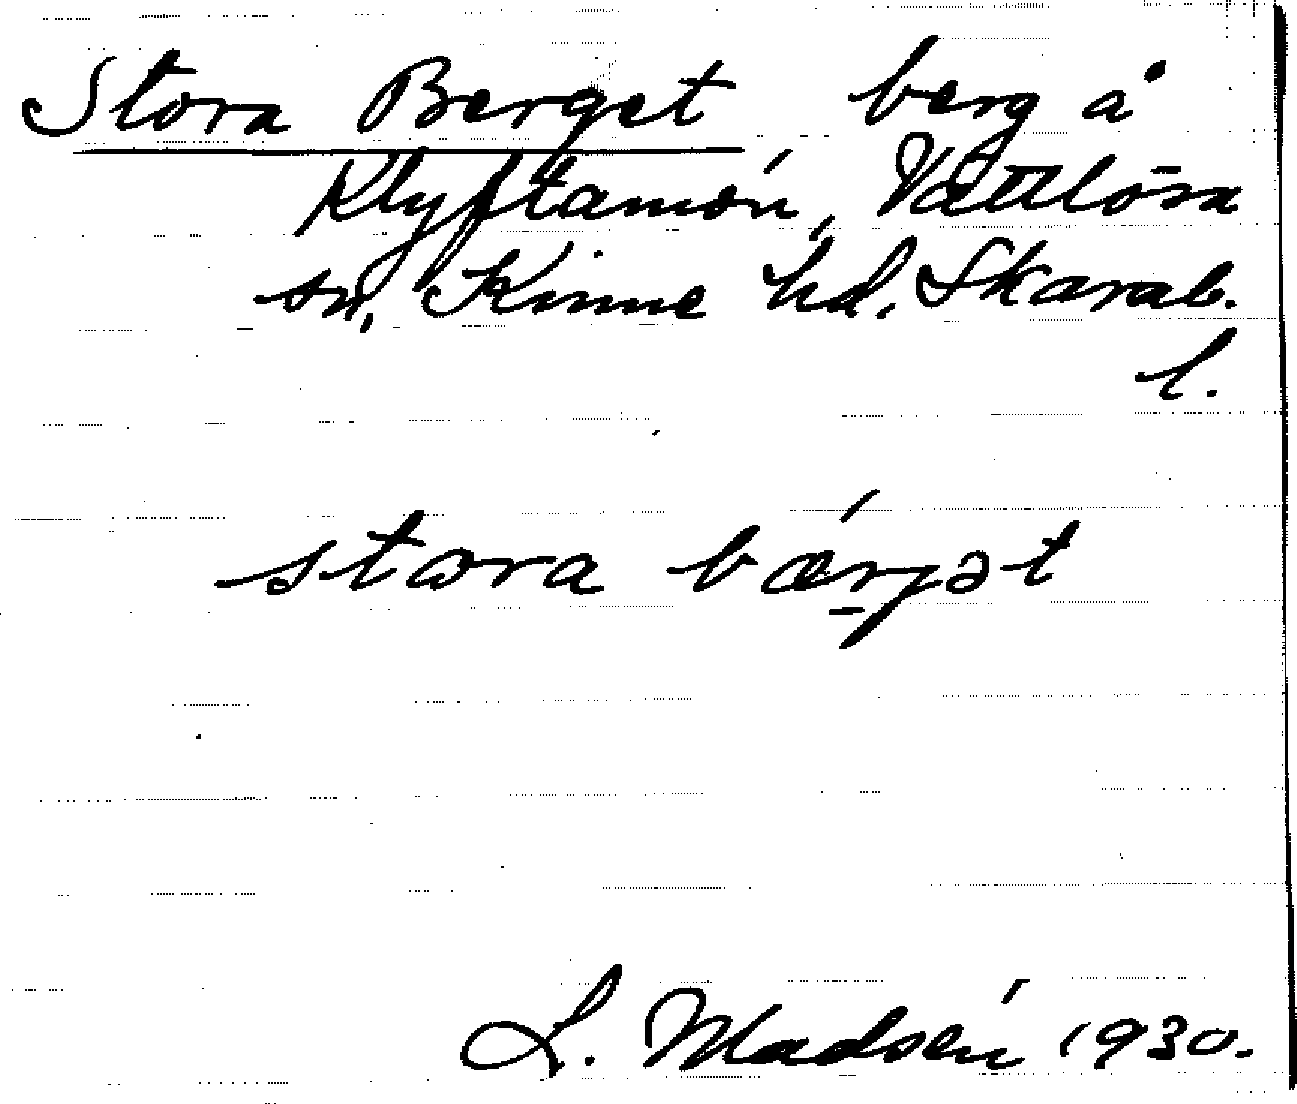 Stora Berget berg å
Klyftamon, Vättlösa
sn, Kinne hd, Skarab.
l.
stora bærjət
L. Madsén 1930.